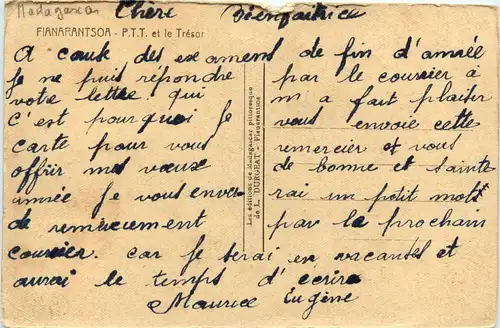 Madagascar
Chère Bienfaitrice
FIANARANTSOA - P.T.T. et le Trésor
A cause des examens de fin d'année
je ne puis répondre par le courier à
votre lettre. qui m'a fait plaisir
c'est pourquoi je vous envoie cette
carte pour vous remercier et vous
offrir mes vœux de bonne et sainte
année je vous enverrai un petit mots
de remerciement par le prochain
courier. car je serai en vacances et
aurai le temps d'écrire
Maurice Eugène
Les éditions de Madagascar pittoresque
de L. DURGEAT - Fianarantsoa